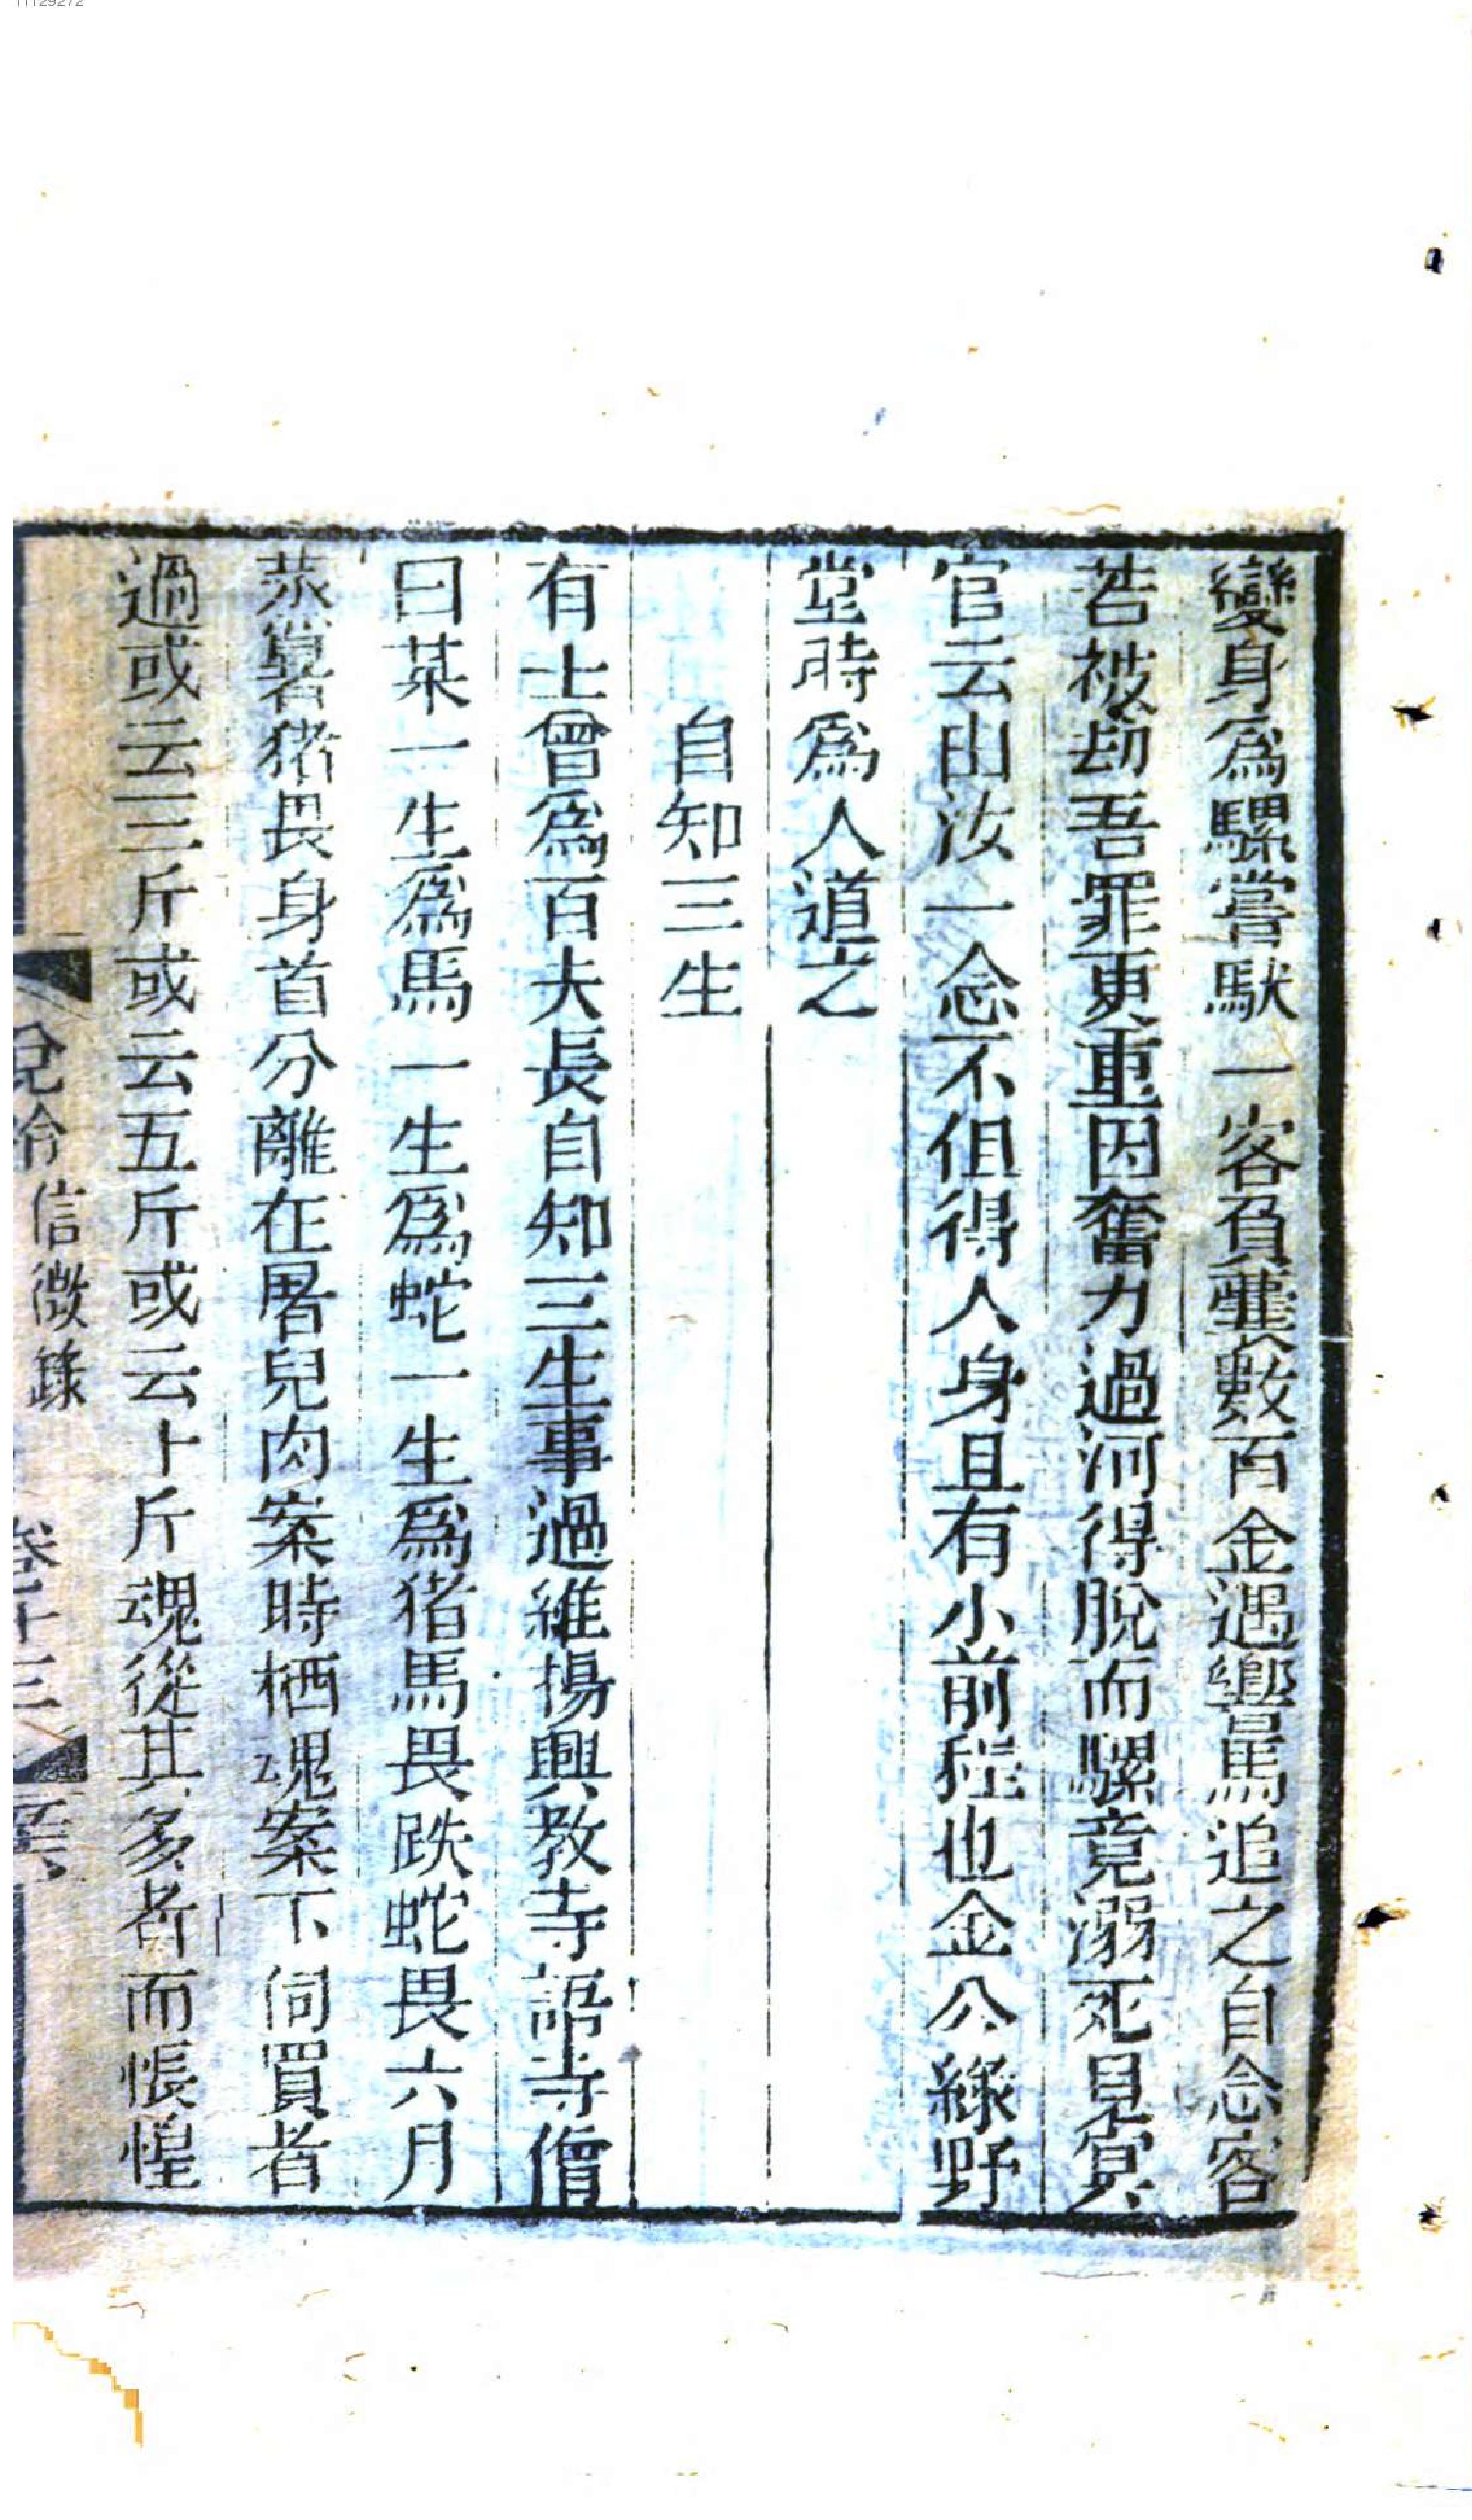 變身爲騾嘗馱一客負囊數百金遇響馬追之自念客
若被刼吾罪更重因奮力過河得脫而騾竟溺死見冥
官云由汝一念不但得人身且有小前程也金公綠野
堂時爲人道之
自知三生
有士曾爲百夫長自知三生事過維揚興教寺語寺僧
曰某一生爲馬一生爲蛇一生爲猪馬畏跌蛇畏六月
蒸暑猪畏身首分離在屠兒肉案時栖魂案下伺買者
過或云三斤或云五斤或云十斤魂從其多者而悵惶
說鈴 信徵錄 卷十三